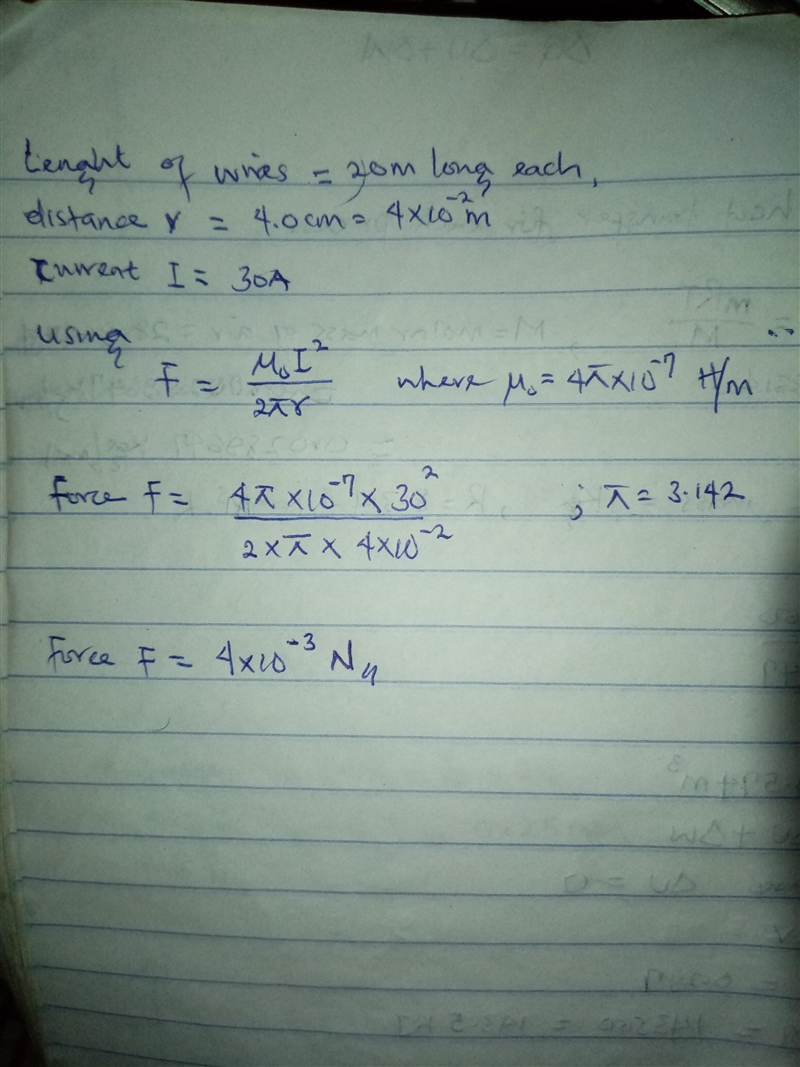 Lenght of wires = 20m long each,
distance r = 4.0cm = 4×10⁻² m
Current I = 30A
using
F = μ₀I² / 2πr where μ₀ = 4π×10⁻⁷ H/m
Force F = 4π × 10⁻⁷ × 30² / 2 × π × 4×10⁻² ; π = 3.142
Force F = 4×10⁻³ N